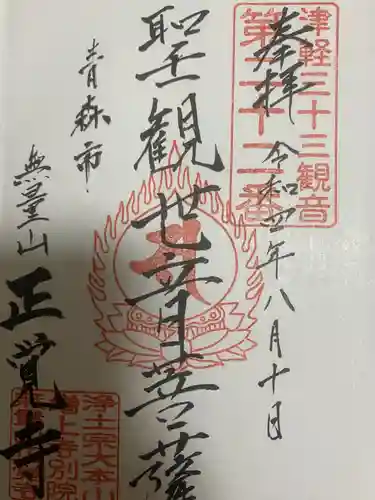 奉拝
津軽三十三観音
第二十二番
令和四年八月十日
聖観世音菩薩
青森市
無量山
正覚寺
浄土宗大本山
増上寺別院